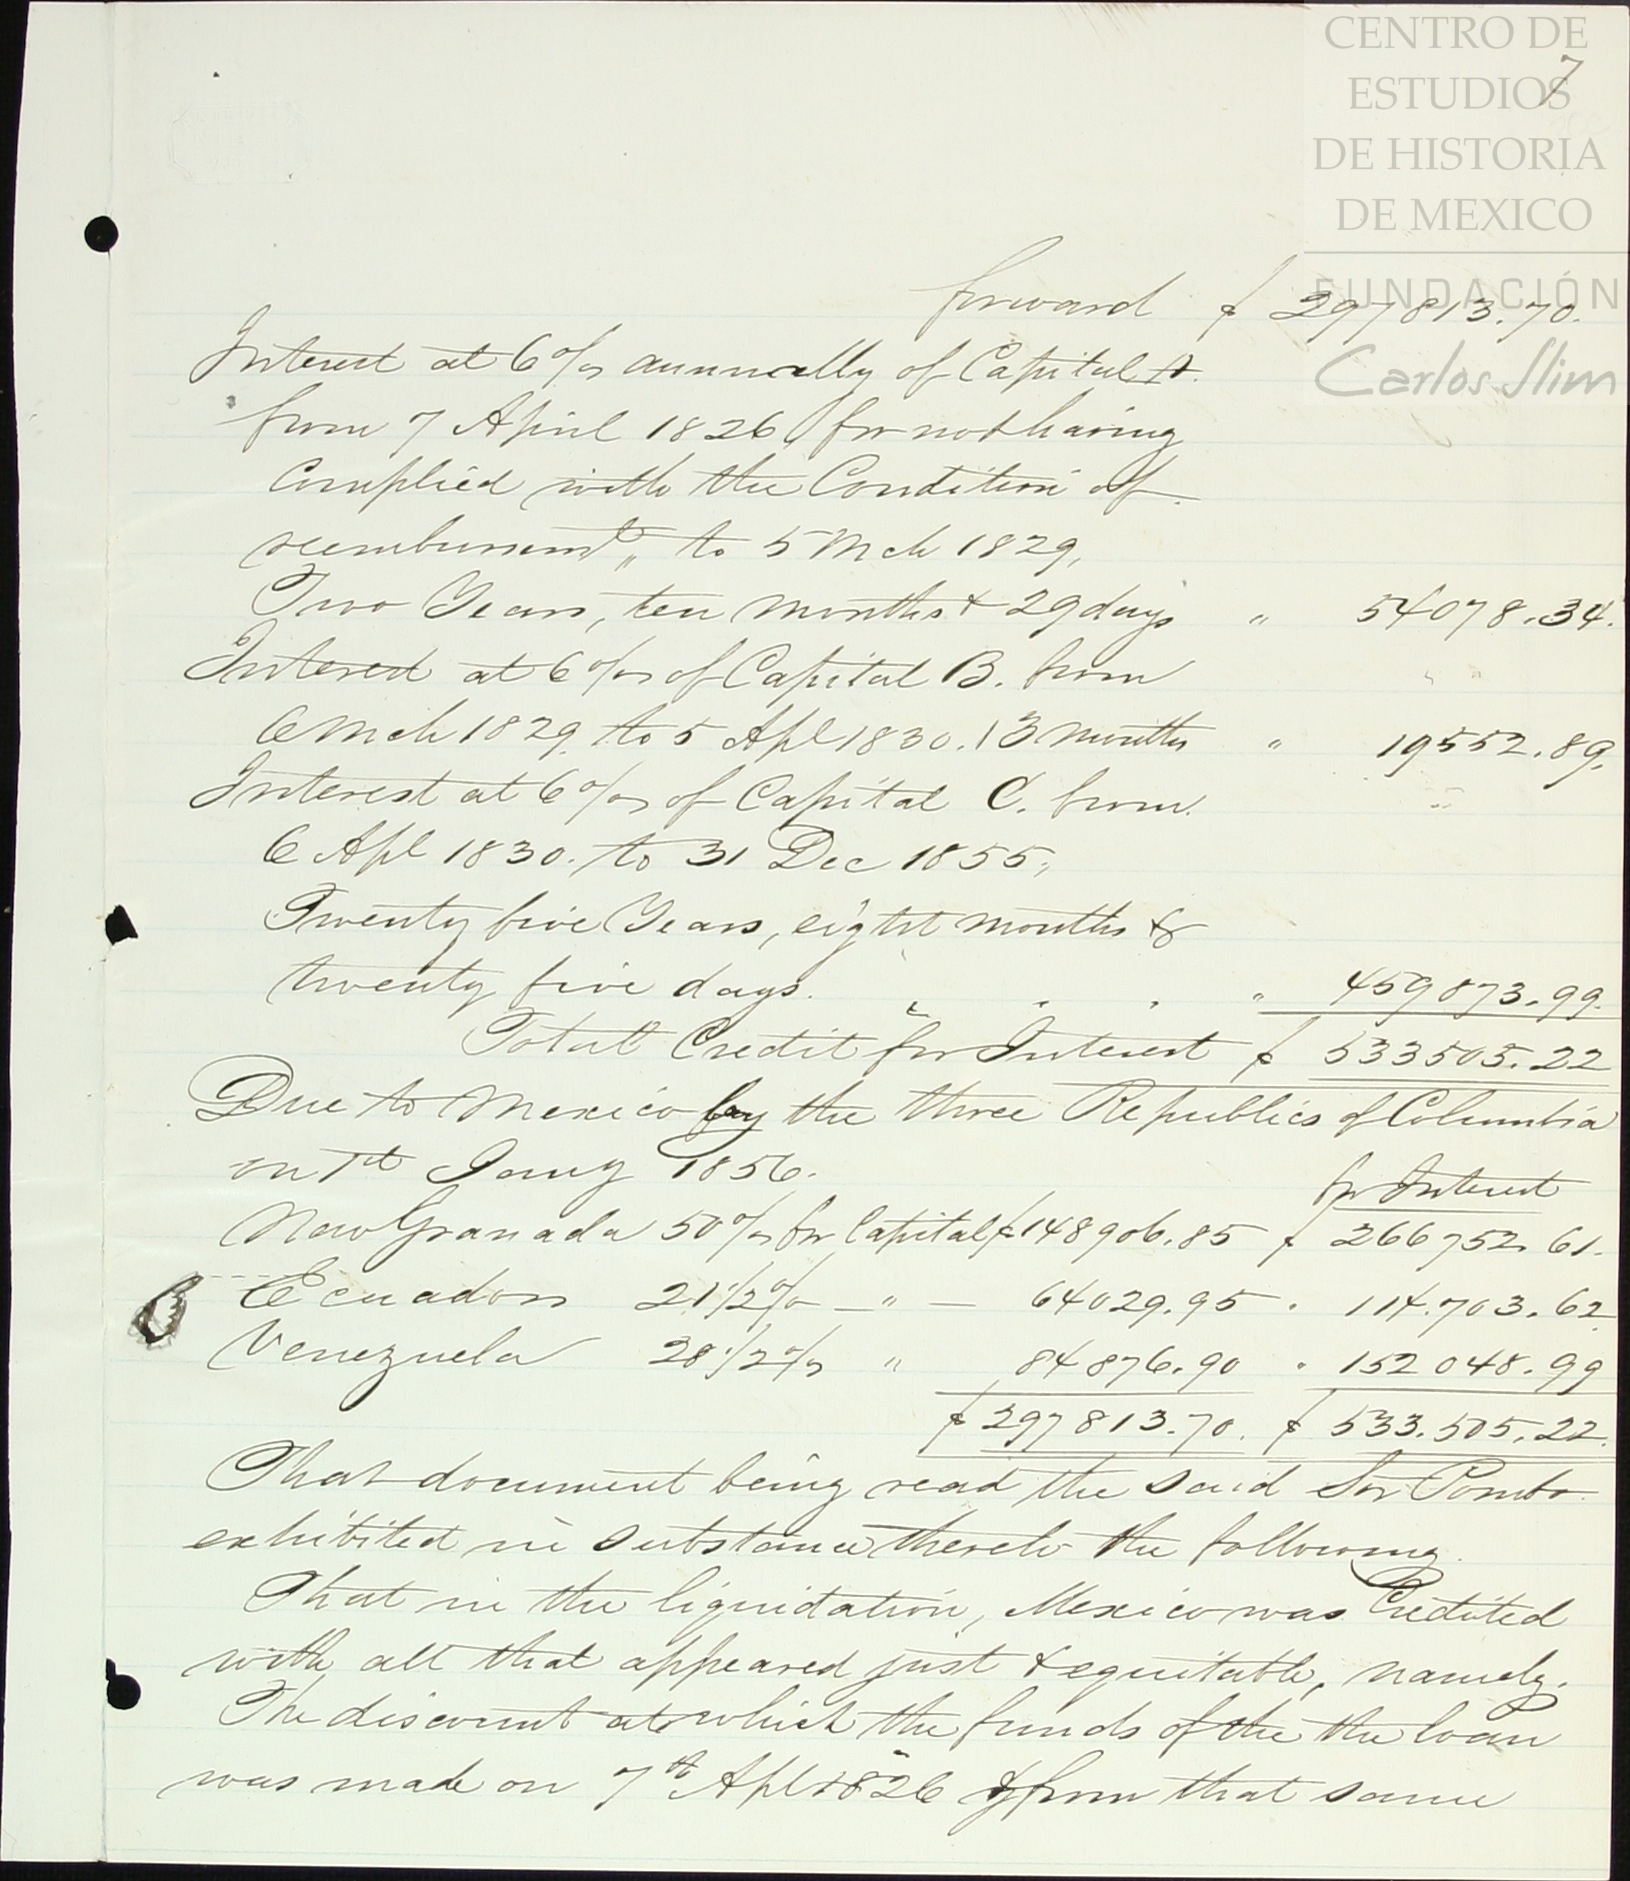 CENTRO DE
ESTUDIOS
DE HISTORIA
DE MEXICO
FUNDACIÓN
Carlos Slim
7
forward $ 297813.70.
Interest at 6% annually of Capital A.
from 7 April 1826, for not having
Complied with the Condition of
reembursemt „ to 5 Mch 1829,
Two Years, ten months & 29 days " 54078.34.
Interest at 6% of Capital B. from
6 Mch 1829. to 5 Apl 1830. 13 Months " 19552.89.
Interest at 6% of Capital C. from
6 Apl 1830. to 31 Dec 1855,
Twenty five Years, eight months &
twenty five days. " " " " 459873.99.
Total Credit for Interest $ 533505.22
Due to Mexico by the three Republics of Columbia
on 1st Jany 1856.
for Interest
New Granada 50% for Capital $ 148906.85 $ 266752.61.
Ecuador 21 1/2% — " — 64029.95 " 114.703.62
Venezuela 28 1/2% " 84876.90 " 152048.99
$ 297813.70. $ 533.505.22.
That document being read the said Sor Pombo
exhibited in substance thereto the following.
That in the liquidation, Mexico was Credited
with all that appeared just & equitable, namely.
The discount at which the funds of the the loan
was made on 7th Apl 1826 & from that same